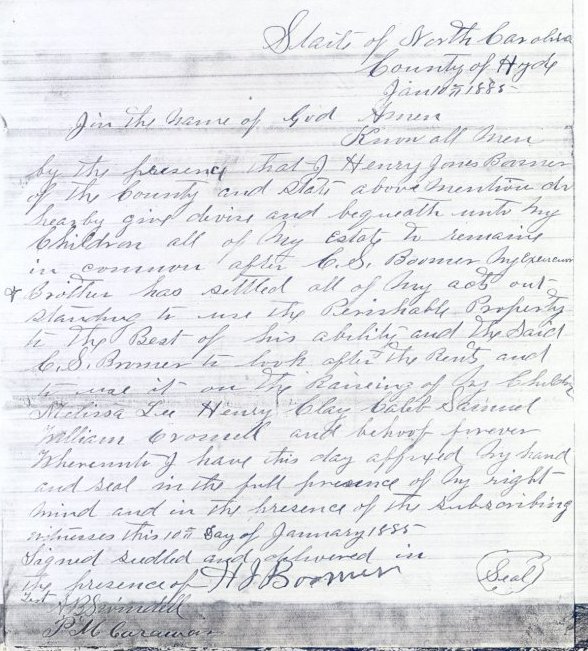 State of North Carolina
County of Hyde
Jan 10th 1885
In the Name of God Amen
Know all Men
by the presence that I Henry Jones Boomer
of the County and State above mention do
hearby give devise and bequeath unto my
Children all of my Estate to remaine
in common after C.S. Boomer my Executor
& Brother has settled all of my acts out-
standing to use the Perishable Property
to the Best of his ability and the Said
C.S. Boomer to look after the Rents and
to use it on the Raiseing of my Children
Melissa Lee Henry Clay Caleb Samuel
William Cromell and behoof forever
Whereunto I have this day affixed my hand
and seal in the full presence of my right
mind and in the presence of the subscribing
witnesses this 10th Day of January 1885
Signed sealled and delivered in
the presence of H J Boomer (Seal)
Test
Swindell
P. M. Carawan